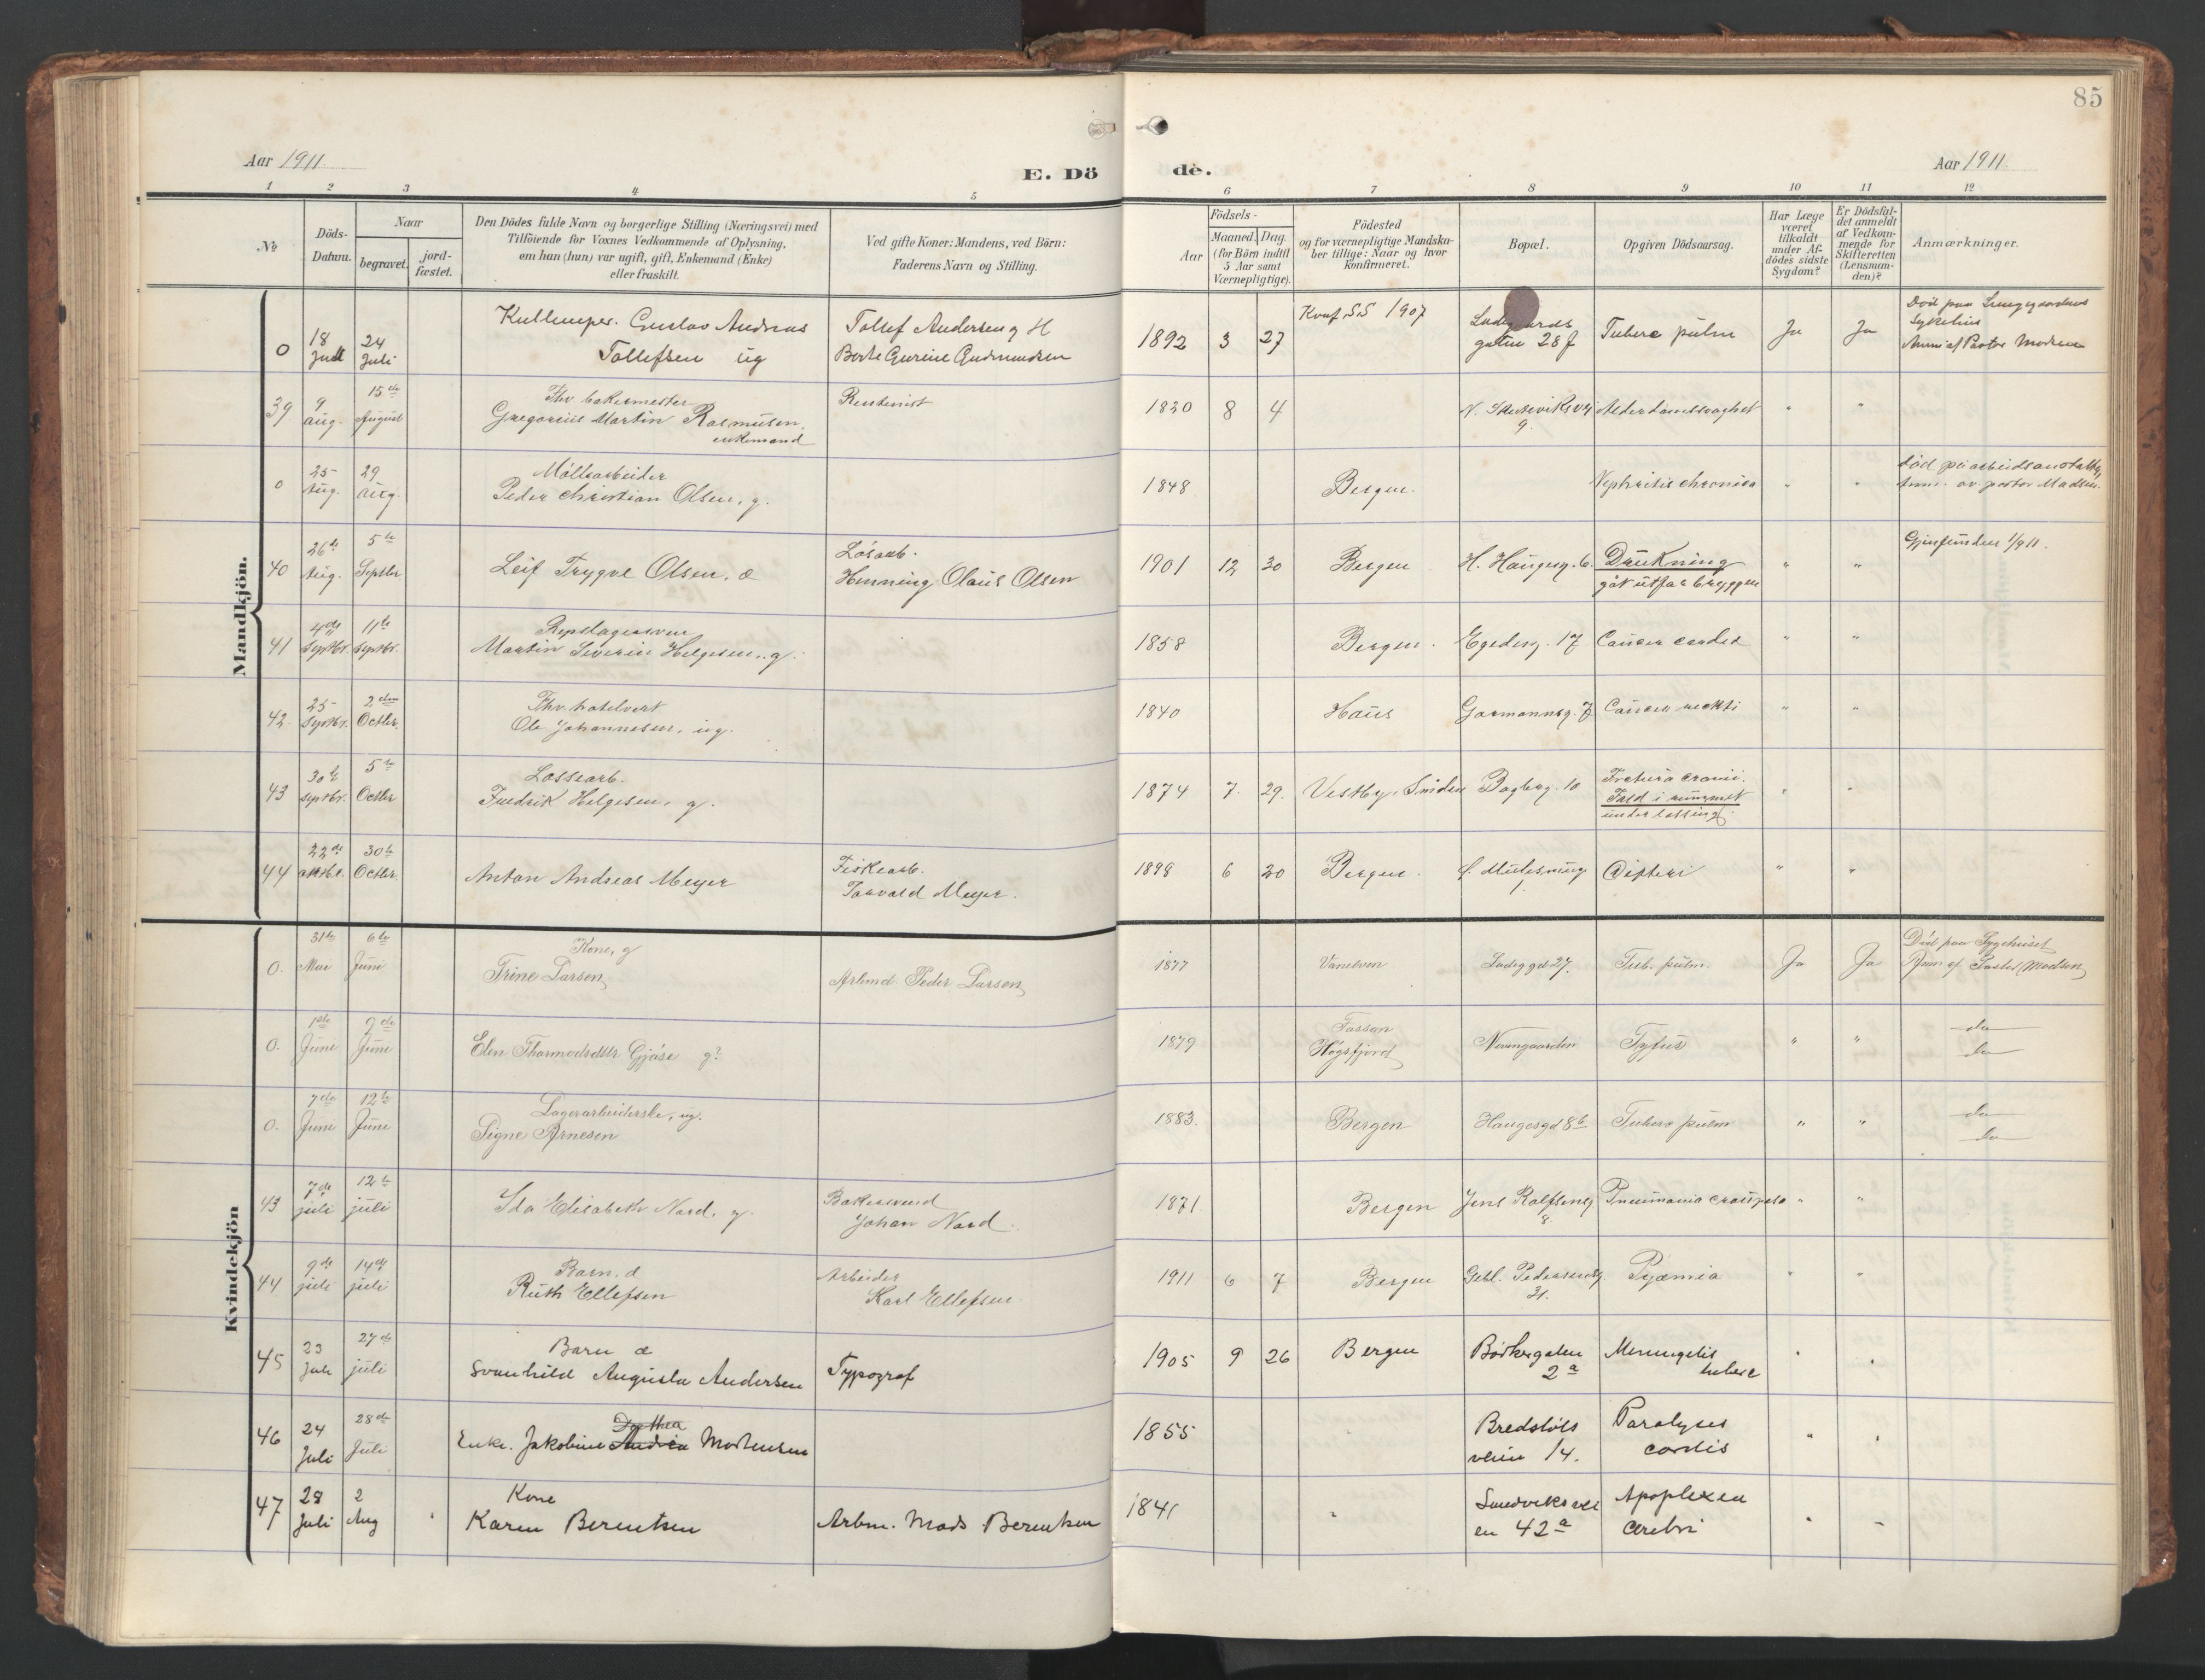 85
Aar 1911.
E. Dö
de.
Aar 1911.
1 2 3 4 5 6 7 8 9 10 11 12
No
Döds-
Datum.
Naar
begravet.
jord-
fæstet.
Den Dödes fulde Navn og borgerlige Stilling (Næringsvei) med
Tilföiende for Voxnes Vedkommende af Oplysning,
om han (hun) var ugift, gift, Enkemand (Enke)
eller fraskilt.
Ved gifte Koner: Mandens, ved Börn:
Faderens Navn og Stilling.
Födsels-
Aar
Maaned. Dag.
(for Börn indtil
5 Aar samt
Værnepligtige).
Födested
og for værnepligtige Mandska-
ber tillige: Naar og hvor
konfirmeret.
Bopæl.
Opgiven Dödsaarsag.
Har Læge
været
tilkaldt
under Af-
dödes sidste
Sygdom?
Er Dödsfal-
det anmeldt
af Vedkom-
mende for
Skifteretten
(Lensman-
den)?
Anmærkninger.
Mandkjön.
0 18 Juli 24 Juli
Gustav Andreas
Tollefsen ug
Tollef Andersen
Berte Gurine Gudmundsen
1892 3 27
Konf. 1907
gaten 28
Tuberc pulm
Ja Ja
Sykehus
39 9 aug. 15de August
Fhv. bakermester
Gregorius Martin Rasmusen,
enkemand
Rentenist
1820 8 4
9.
Alderdomssvaghet
" "
0 25 Aug. 29 aug.
Möllearbeider
Peder Christian Olsen, g.
1848
Bergen.
Nephritis chronica
" "
død på arbeidsanstalten,
anm. av pastor Madsen.
40 26de Aug. 5te Septbr
Leif Trygve Olsen. d
Lösarb.
Henning Olaus Olsen
1901 12 30
Bergen
H. Haugesg. 6.
Drukning
gåt utfor bryggen
" "
Gjenfunden 1/9 11.
41 4de Septbr. 11te Septbr.
Repslagersvend
Martin Severin Helgesen, g.
1858
Bergen.
Egedesg. 17
Cancer cardia
" "
42. 25 Septbr. 2den Octbr.
Fhv. hotelvert
Ole Johannesen, ug.
1840
Haus
Garmannsg. 7
Cancer rekti
" "
43 30te septbr. 5te Octbr
Lossearb.
Fredrik Helgesen, g.
1874 7. 29.
Vestby, Smålen
10
Fractura cranii.
Fald i rummet
under lossing.
44 22de oktobr. 30te Octbr.
Anton Andreas Meyer
Fiskearb.
Torvald Meyer.
1898 6 20
Bergen.
Difteri
" "
Kvindekjön
0. 31te Mai 6te Juni
Kone, g
Trine Larsen
Arbmd. Peder Larsen
1877
Vanelven
Ladeggd 27.
Tub. pulm.
Ja Ja
Död paa Sygehuset
Anm af Pastor Madsen
0. 1ste Juni 9de Juni
Elen Thormodsdtr Gjöse g?
1879
Fossan
Høgsfjord
Neumgaarden
Tyfus
" "
do
do
0. 7de Juni 12te Juni
Lagerarbeiderske, ug.
Signe Arnesen
1883.
Bergen
Haugesgd 8b
Tuberc pulm
" "
do
do
43 7de juli 12te juli
Ida Elisabeth Nord, g.
Bakersvend
Johan Nord.
1871
Bergen
Jens Rolfsensg
8.
Pneumonia crouposa
" "
44 9de juli 14de juli
Barn. d
Ruth Ellefsen
Arbeider
Karl Ellefsen
1911 6 7
Bergen
Gebl. Pedersensg.
31.
Pyæmia
" "
45 23 Juli 27de juli
Barn d
Svanhild Augusta Andersen
Typograf
1905 9 26
Bergen
Bödkergaten
2a
Meningitis
tuberc
46 24 Juli 28de Juli
Dorthea
Enke. Jakobine Andrea Mortensen
1855
Bredstöls
veien 14.
Paralyses
cordis
" "
47 28 Juli 2 Aug
Kone
Karen Berentsen
Arbm. Mads Berentsen
1841
Sandviksvei
en 42a
Apoplexia
cerebri